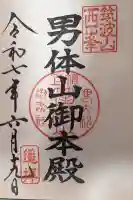 筑波山
西峯
男体山御本殿
令和七年六月十九日